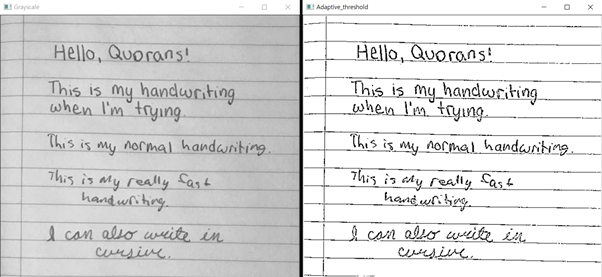 Grayscale
Hello, Quorans!
This is my handwriting
when I'm trying.
This is my normal handwriting.
This is my really fast
handwriting.
I can also write in
cursive.
Adaptive_threshold
Hello, Quorans!
This is my handwriting
when I'm trying.
This is my normal handwriting.
This is my really fast
handwriting.
I can also write in
cursive.